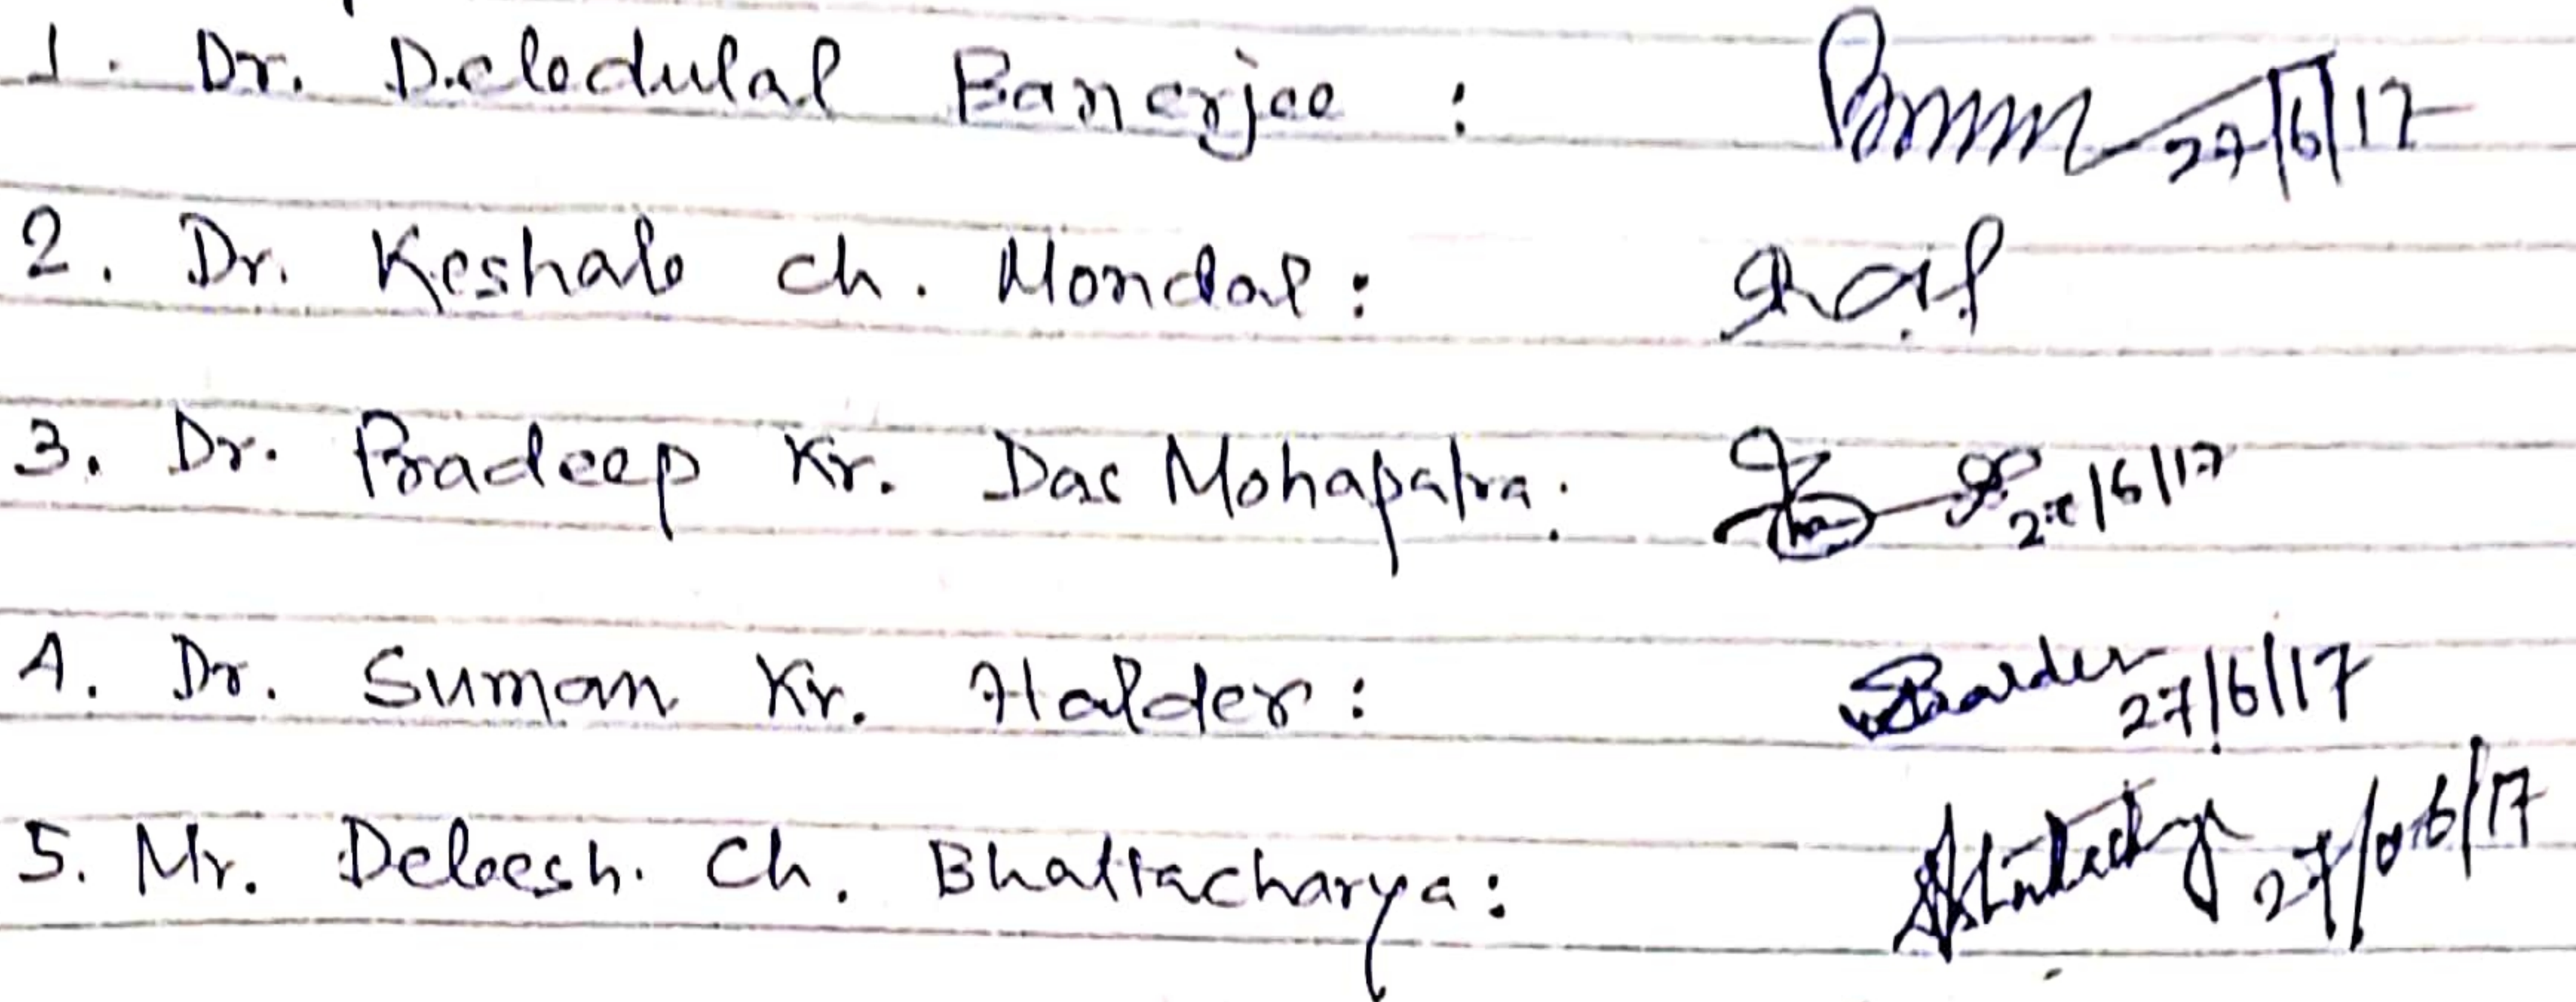 1. Dr. Debdulal Banerjee : 27/6/17
2. Dr. Keshab Ch. Mondal :
3. Dr. Pradeep Kr. Das Mohapatra : 27/6/17
4. Dr. Suman Kr. Halder : 27/6/17
5. Mr. Debesh Ch. Bhattacharya : 27/06/17